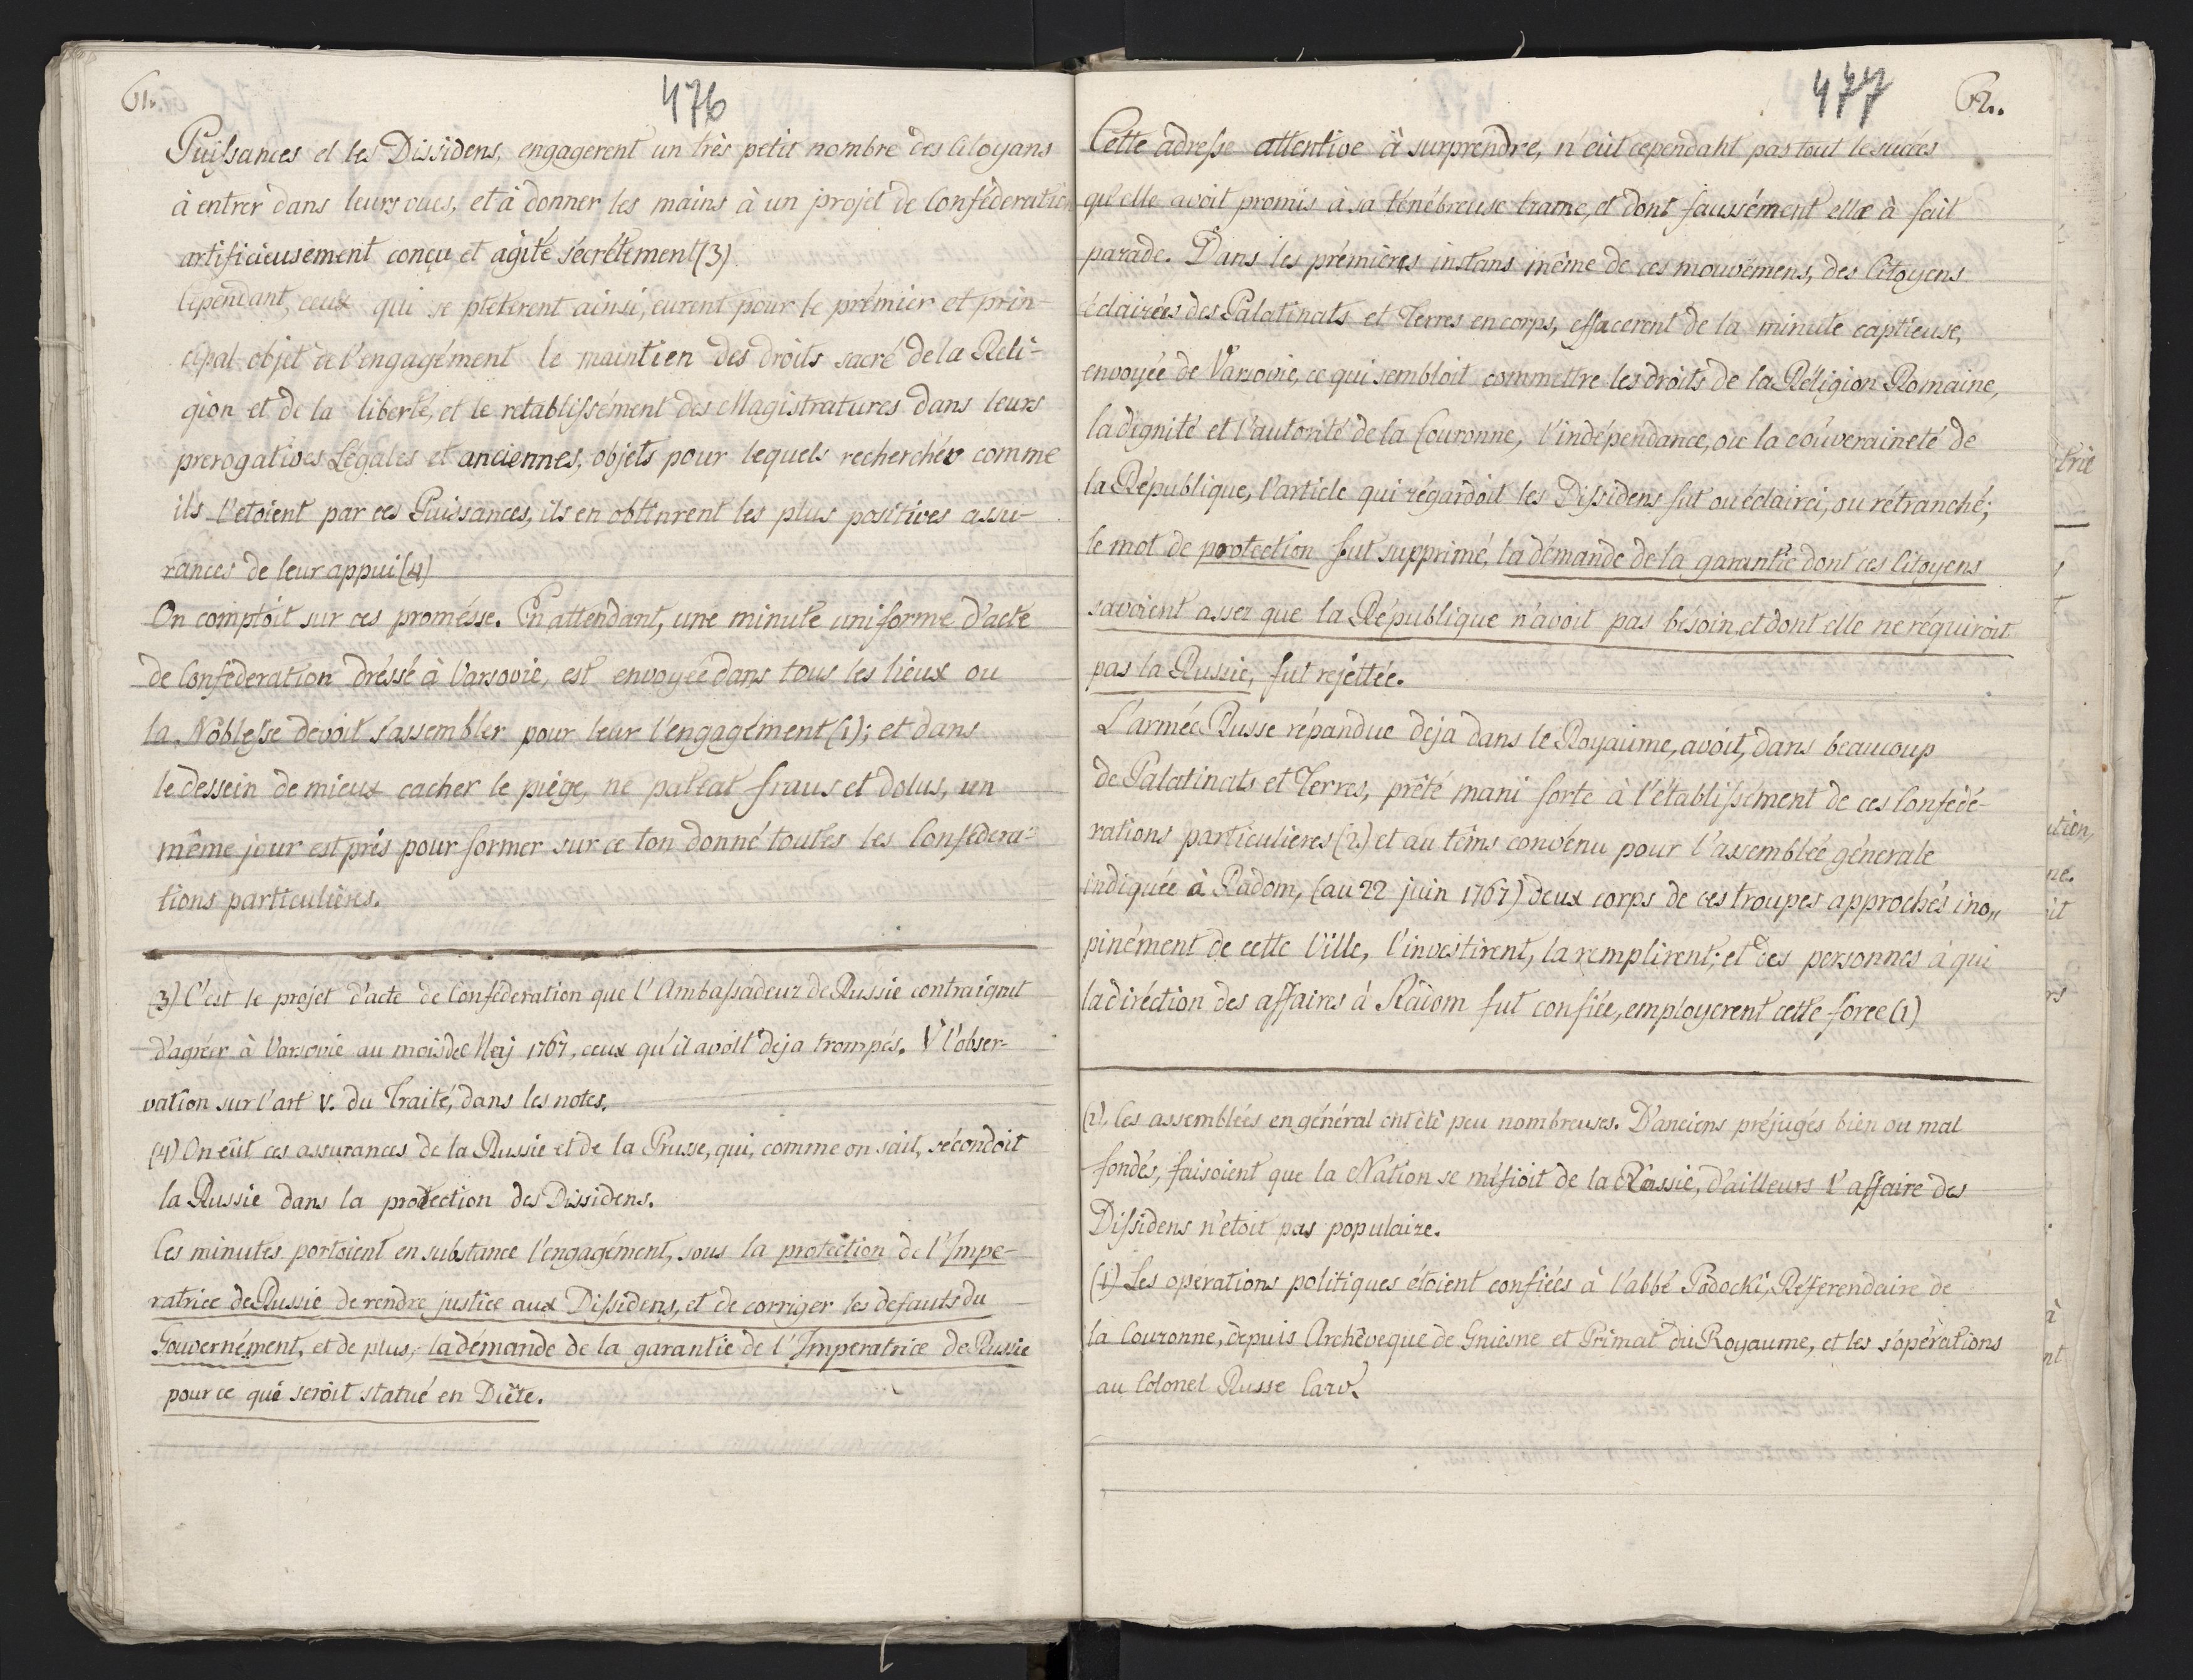 61.
476
Puissances et les Dissidens, engagerent un très petit nombre des Citoyans
à entrer dans leurs vues, et à donner les mains à un projet de Conféderation
artificieusement conçu et agité sécrétement (3)
Cependant, ceux qui se pretérent ainsi, eurent pour le prémier et prin-
cipal objet de l'engagément le maintien des droits sacré de la Reli-
gion et de la liberté, et le retablissément des Magistratures dans leurs
prerogatives Légales et anciennes, objets pour lequels recherchés comme
ils l'etoient par ces Puissances, ils en obtinrent les plus positives assu-
rances de leur appui (4)
On comptoit sur ces promésse. En attendant, une minute uniforme d'acte
de Conféderation dréssé à Varsovie, est envoyée dans tous les lieux ou
la Noblesse devoit s'assembler pour leur l'engagément (1); et dans
le dessein de mieux cacher le piège, ne pateat fraus et dolus, un
même jour est pris pour former sur ce ton donné toutes les Confédera-
tions particulières.
(3) C'est le projet d'acte de Conféderation que l'Ambassadeur de Russie contraignit
d'agréer à Varsovie au mois de Maj 1767, ceux qu'il avoit deja trompés. V l'obser-
vation sur l'art V. du Traité, dans les notes.
(4) On eût ces assurances de la Russie et de la Prusse, qui, comme on sait, sécondoit
la Russie dans la protection des Dissidens.
Ces minutes portoient en substance l'engagément, sous la protection de l'Impe-
ratrice de Russie de rendre justice aux Dissidens, et de corriger les defauts du
Gouvernément, et de plus, la démande de la garantie de l'Imperatrice de Russie
pour ce qui seroit statué en Diète.
477
62.
Cette adresse attentive à surprendre, n'eût cependaht pas tout le succès
qu'elle avoit promis à sa ténébreuse trame, et dont faussément elle à fait
parade. Dans les prémières instans même de ces mouvémens, des Citoyens
éclairées des Palatinats et Terres en corps, effacerent de la minute captieuse,
envoyée de Varsovie, ce qui sembloit commettre les droits de la Réligion Romaine,
la dignité et l'autorité de la Couronne, l'indépendance, ou la souveraineté de
la République, l'article qui régardoit les Dissidens fut ou éclairci, ou rétranché;
le mot de protection fut supprimé, la démande de la garantie dont ces Citoyens
savoient assez que la République n'avoit pas bésoin, et dont elle ne réquiroit
pas la Russie, fut rejéttée.
L'armée Russe répandue deja dans le Royaume, avoit, dans beaucoup
de Palatinats et Terres, prêté mani forte à l'établissément de ces Confédé-
rations particulieres (2) et au téms convénu pour l'assemblée génerale
indiquée à Radom, (au 22 juin 1767) deux corps de ces troupes approchés ino„
pinément de cette Ville, l'investirent, la remplirent; et des personnes à qui
la diréction des affaires à Radom fut confiée, employerent cette force (1)
(2). Les assemblées en général ont été peu nombreuses. D'anciens préjugés bien ou mal
fondés, faisoient que la Nation se méfioit de la Russie, d'ailleurs l'affaire des
Dissidens n'etoit pas populaire.
(1) Les opérations politiques étoient confiées à l'abbé Podocki, Réferendaire de
la Couronne, depuis Archêveque de Gniesne et Primat du Royaume, et les s'opérations
au Colonel Russe Carv.